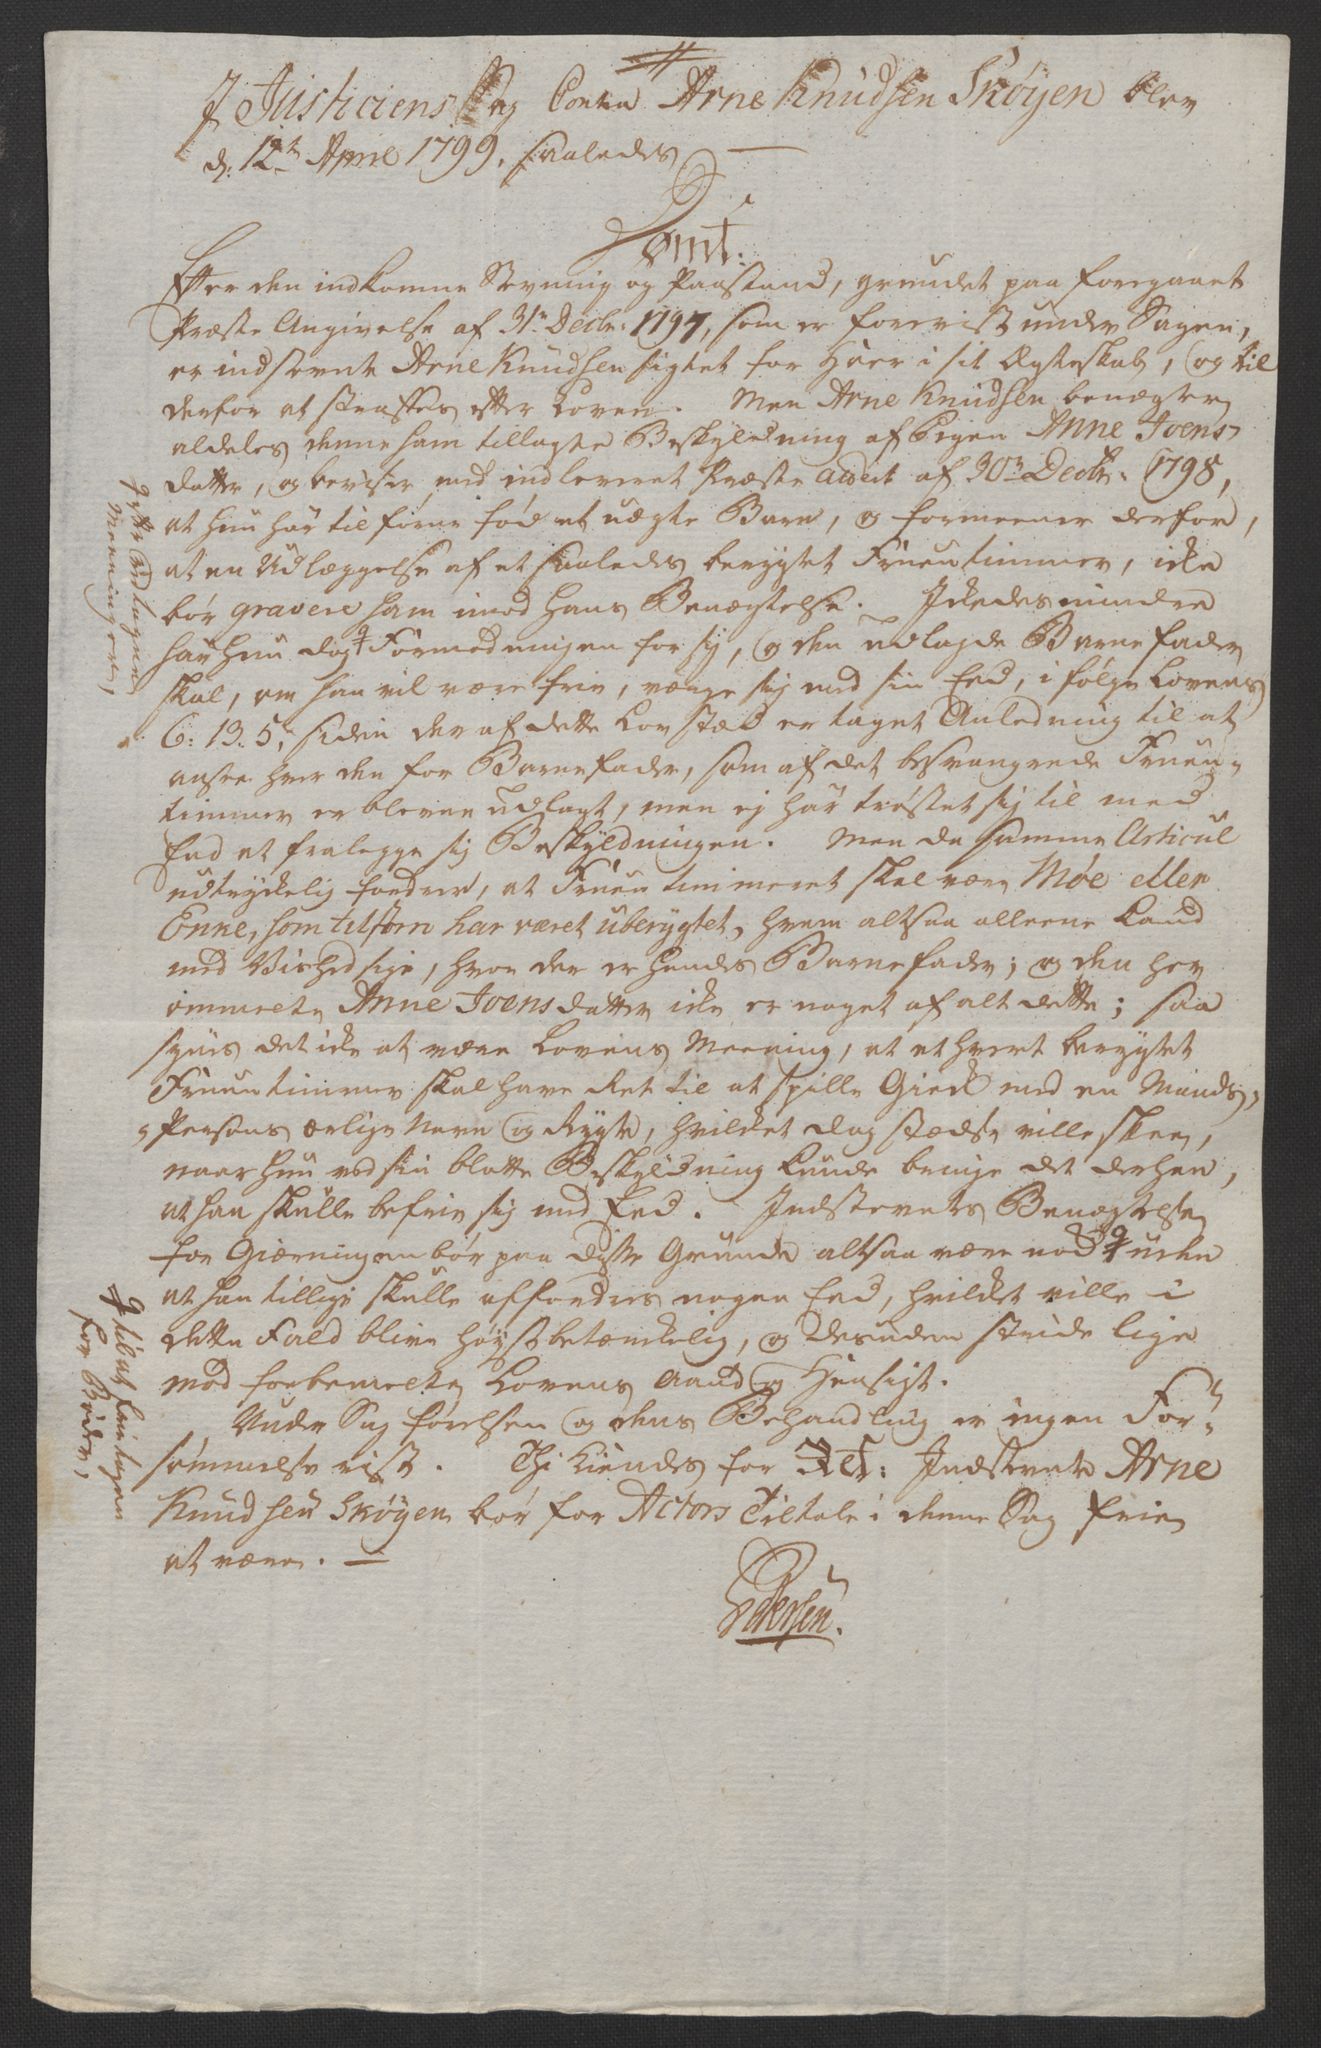 J Justiciens Sag Contra Arne Knudsen Skøyen blev
d: 12te April 1799, saaledes
Dömt:
Efter den indkomne Stevning og Paastand, grundet paa foregaaet
Præste Angivelse af 31te Decbr: 1797, som er foreviist under Sagen,
er indstevnte Arne Knudsen sigtet for Hoer i sit Ægteskab, og til
derfor at straffes efter Loven. Men Arne Knudsen benægter
aldeles denne ham tillagte Beskyldning af Pigen Anne Joens-
datter, og beviser med indleveret Præste Attest af 30te Decbr: 1798,
at hun har tilforn fød et uægte Barn, og formeener derfor,
at en Udlæggelse af et saaledes berygtet Fruentimmer, ikke
bør gravere ham imod hans Benægtelse. Ikkedesmindre
har hun dog Formodningen for sig, og den udlagde Barnefader
skal, om han vil være frie, værge sig med sin Eed, i følge Lovens
6: 13. 5, siden der af dette Lovsted er taget Anledning til at
ansee hver den for Barnefader, som af det besvangrede Fruen-
timmer er bleven udlagt, men ej har trøstet sig til med
Eed at fralegge sig Beskyldningen. Men da samme Articul
udtrykkelig fordrer, at Fruentimmeret skal være Møe eller
Enke, som tilforn har været uberygtet, hvem altsaa alleene kand
med Vished sige, hvor der er hendes Barnefader; og den her
ommeldte Anne Joensdatter ikke er noget af alt dette; saa
synes det ikke at være Lovens Meening, at ethvert berygtet
Fruentimmer skal have Ret til at spille Giek med en Mands-
Persons ærlige Navn og Rygte, hvilket dog stædse ville skee,
naar hun ved sin blotte Beskyldning kunde bringe det derhen,
at han skulle befrie sig med Eed. Indstevntes Benægtelse
for Giærningen bør paa disse Grunde altsaa være nok uden
at han tillige skulle affordres nogen Eed, hvilket ville i
dette Fald blive høyst betænkelig, og desuden stride lige
mod forbemeldte Lovens Aand og Hensigt.
Under Sagførelsen og dens Behandling er ingen For-
sømmelse vist. Thi kiendes for Ret: Indstevnte Arne
Knudsen Skøyen bør for Actors Tiltale i denne Sag frie
at være.
Pedersen.
efter
Meeningen,
til at
for Bøder,